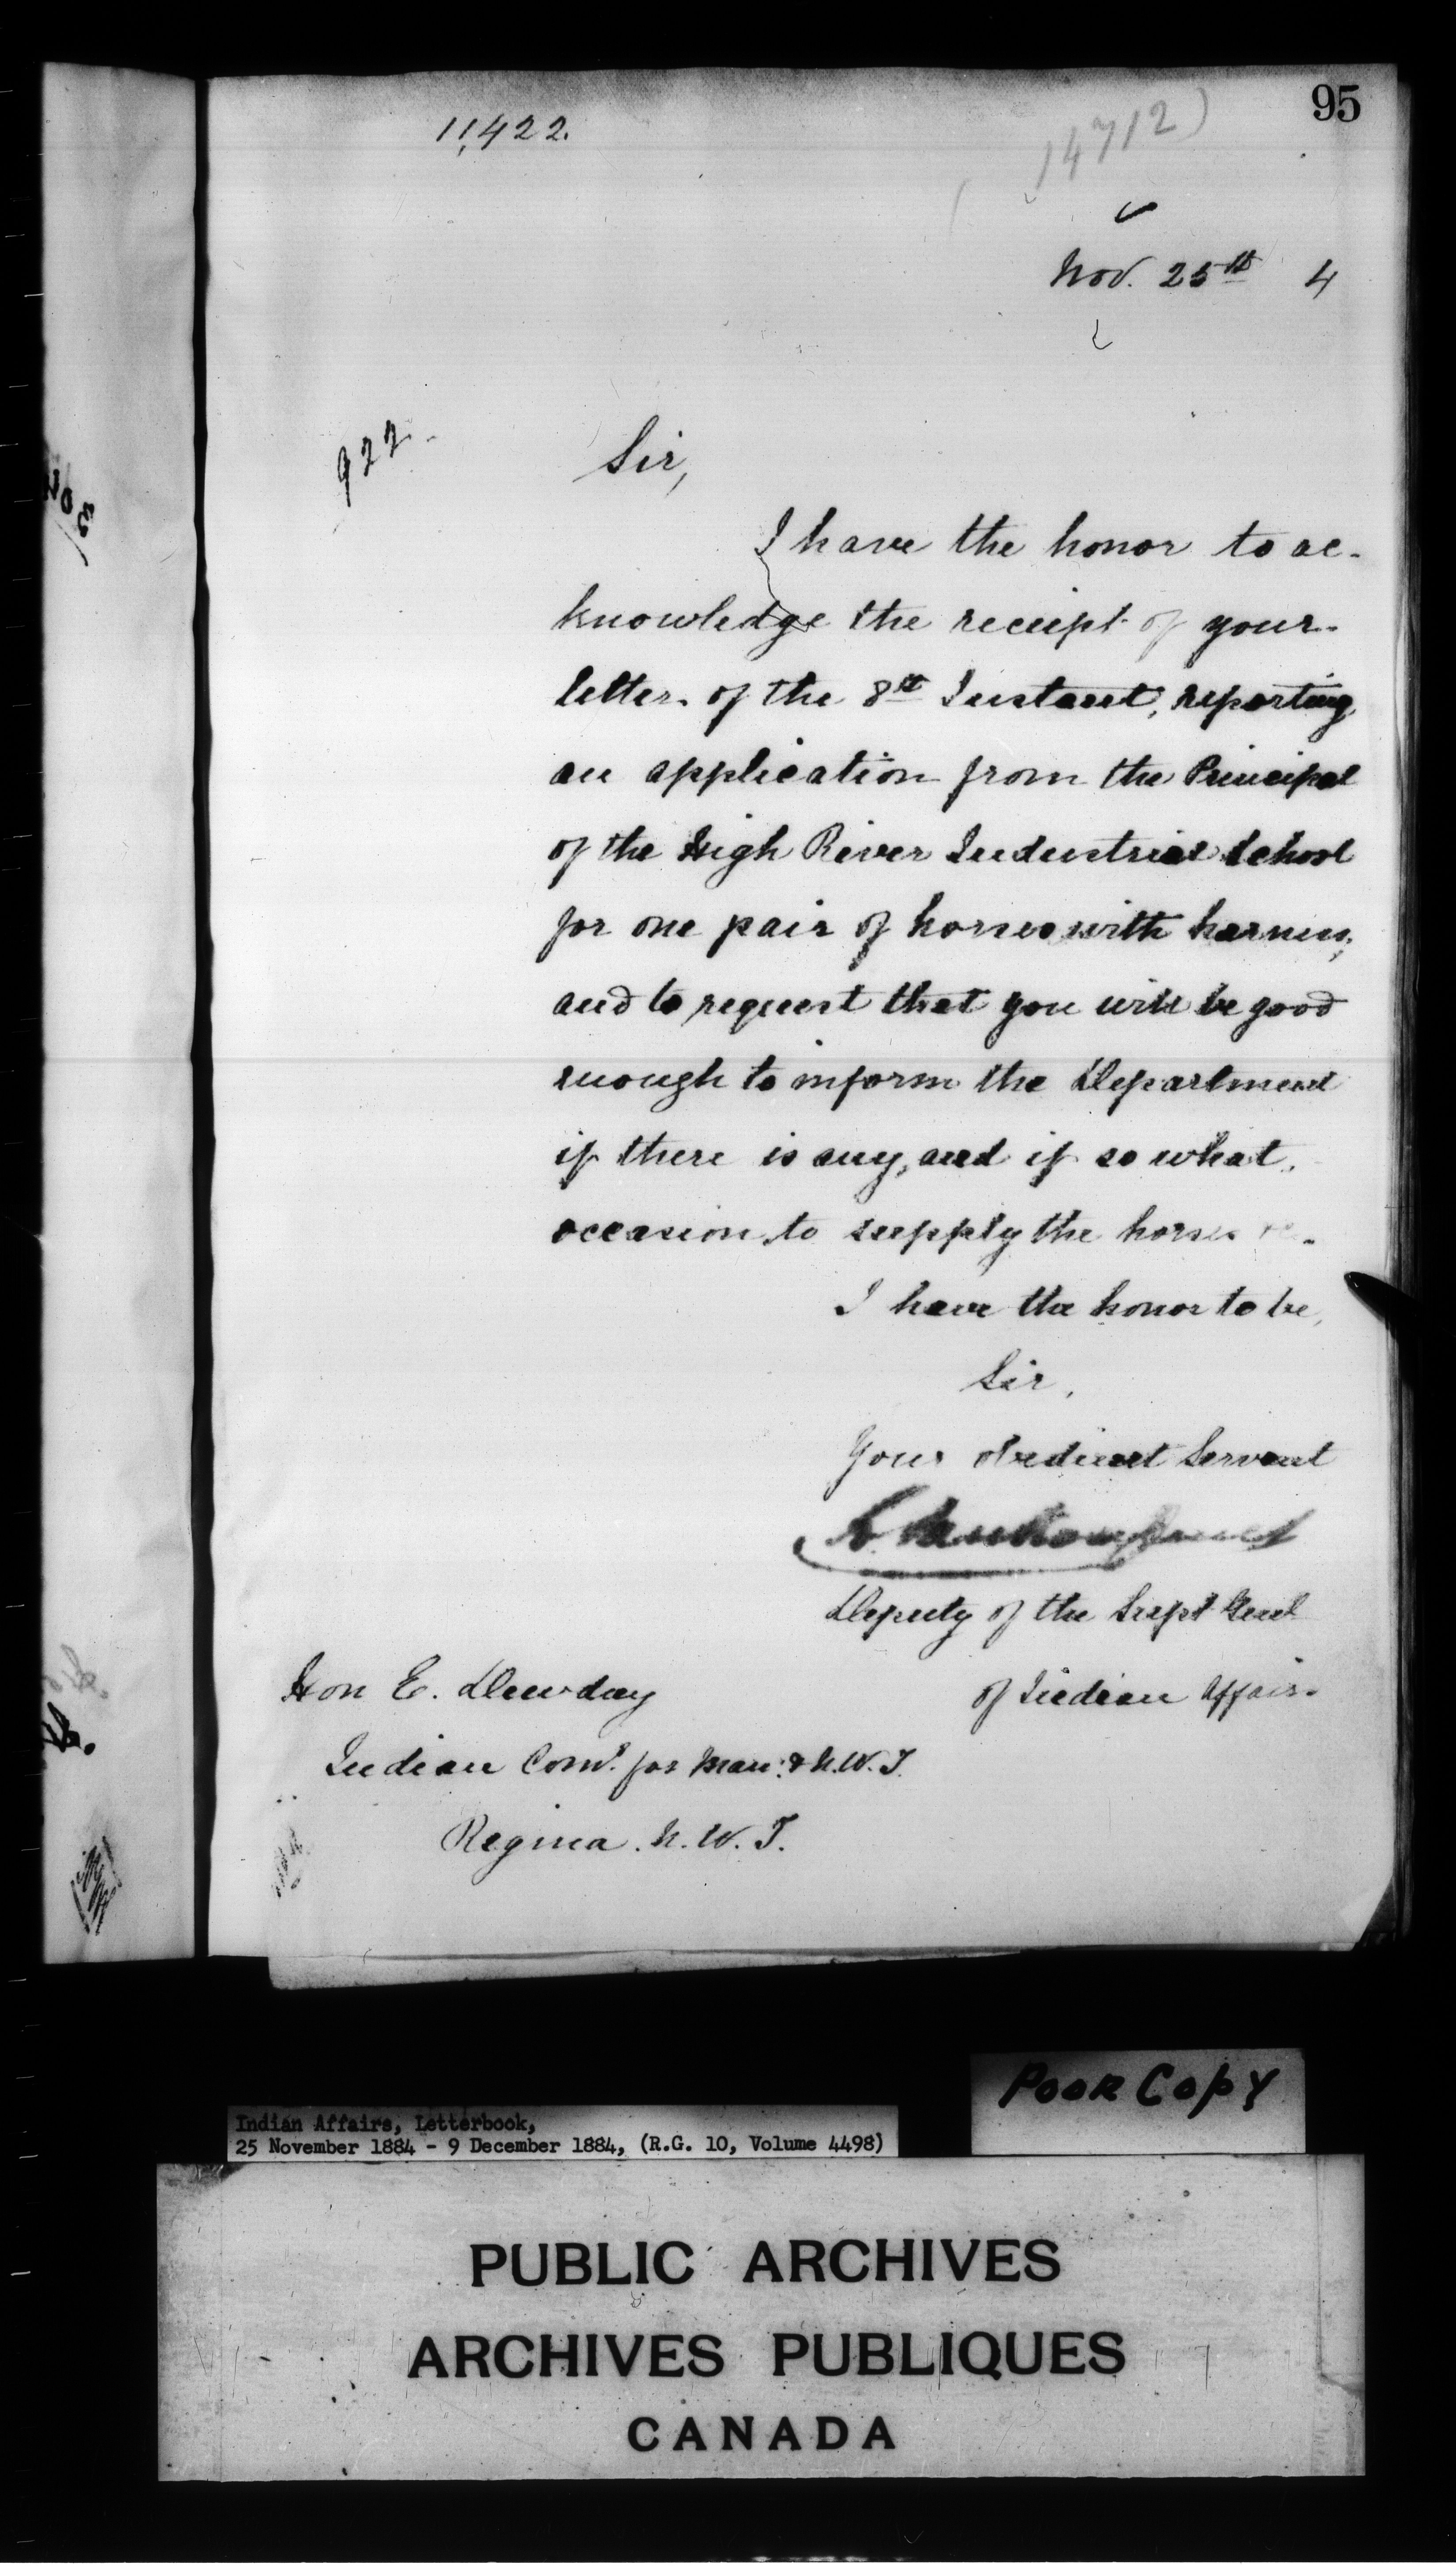 95
11,422.
14712)
Nov. 25th 4
922.
Sir,
I have the honor to ac-
knowledge the receipt of your
letter of the 8th Instant, reporting
an application from the Principal
of the High River Industrial School
for one pair of horses with harness,
and to request that you will be good
enough to inform the Department
if there is any, and if so what,
occasion to supply the horses
I have the honor to be,
Sir,
Your obedient Servant
L. Vankoughnet
Deputy of the Supt Genl
of Indian Affairs
Hon E. Dewdney
Indian Comr. for Man: & N.W.T.
Regina. N.W.T.
POOR COPY
Indian Affairs, Letterbook,
25 November 1884 - 9 December 1884, (R.G. 10, Volume 4498)
PUBLIC ARCHIVES
ARCHIVES PUBLIQUES
CANADA